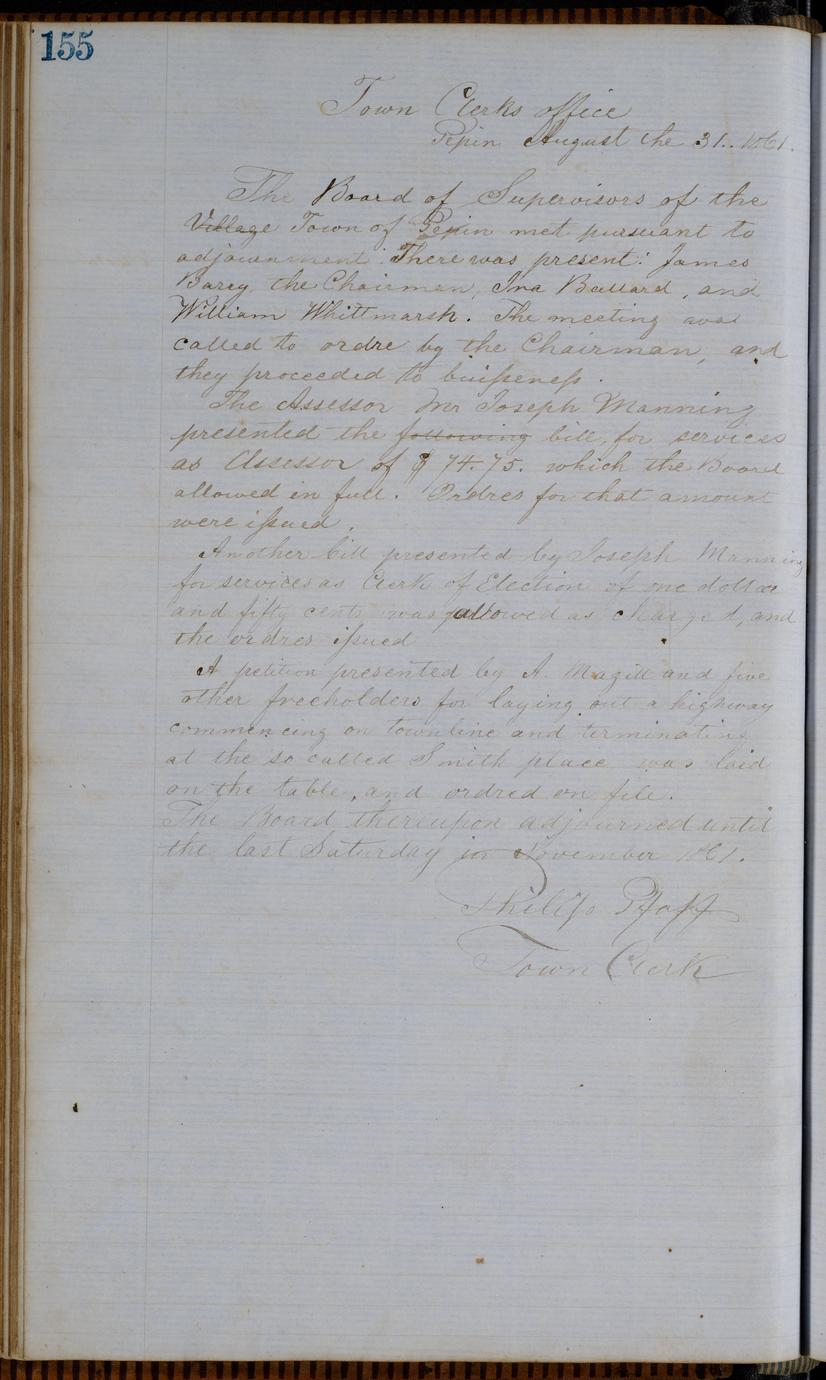 155
Town Clerks office
Pepin August the 31.. 1861.
The Board of Supervisors of the
Village Town of Pepin met pursuant to
adjournment. There was present: James
Barry, the Chairman, Ira Ballard, and
William Whittmarsh. The meeting was
called to ordre by the Chairman, and
they proceeded to buißeneß.
The Assessor Mr Joseph Manning
presented the following bill, for services
as Assessor of $ 74.75. which the Board
allowed in full. Ordres for that amount
were ißued.
Another bill presented by Joseph Manning
for services as Clerk of Election of one dollar
and fifty cents was allowed as charged, and
the ordres ißued
A petition presented by A. Magill and five
other freeholders for laying out a highway
commencing on townline and terminating
at the so called Smith place was laid
on the table, and ordred on file.
The Board thereupon adjourned until
the last Saturday in November 1861.
Philip Pfaff
Town Clerk